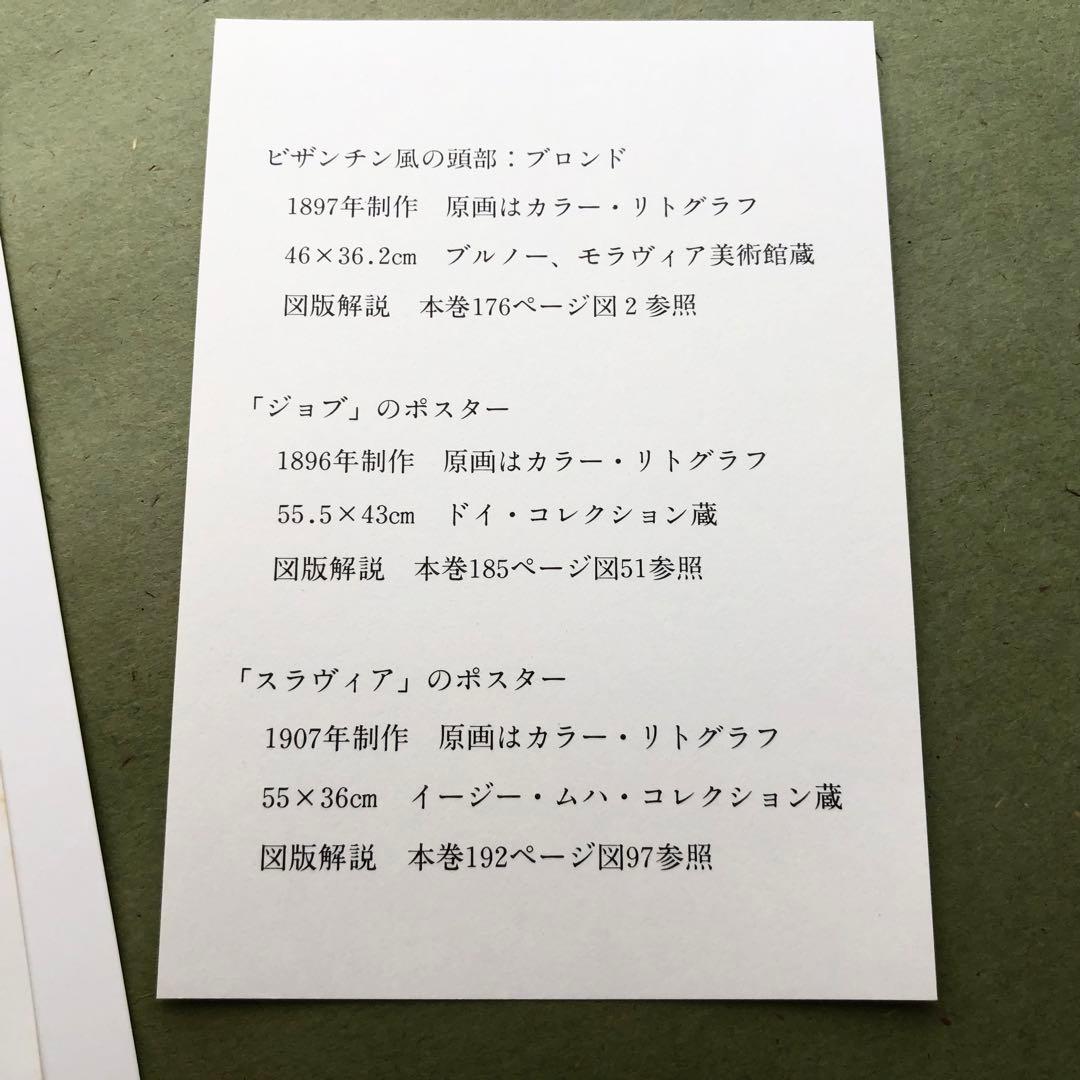 ビザンチン風の頭部：ブロンド
1897年制作　原画はカラー・リトグラフ
46×36.2cm　ブルノー、モラヴィア美術館蔵
図版解説　本巻176ページ図２参照
「ジョブ」のポスター
1896年制作　原画はカラー・リトグラフ
55.5×43cm　ドイ・コレクション蔵
図版解説　本巻185ページ図51参照
「スラヴィア」のポスター
1907年制作　原画はカラー・リトグラフ
55×36cm　イージー・ムハ・コレクション蔵
図版解説　本巻192ページ図97参照